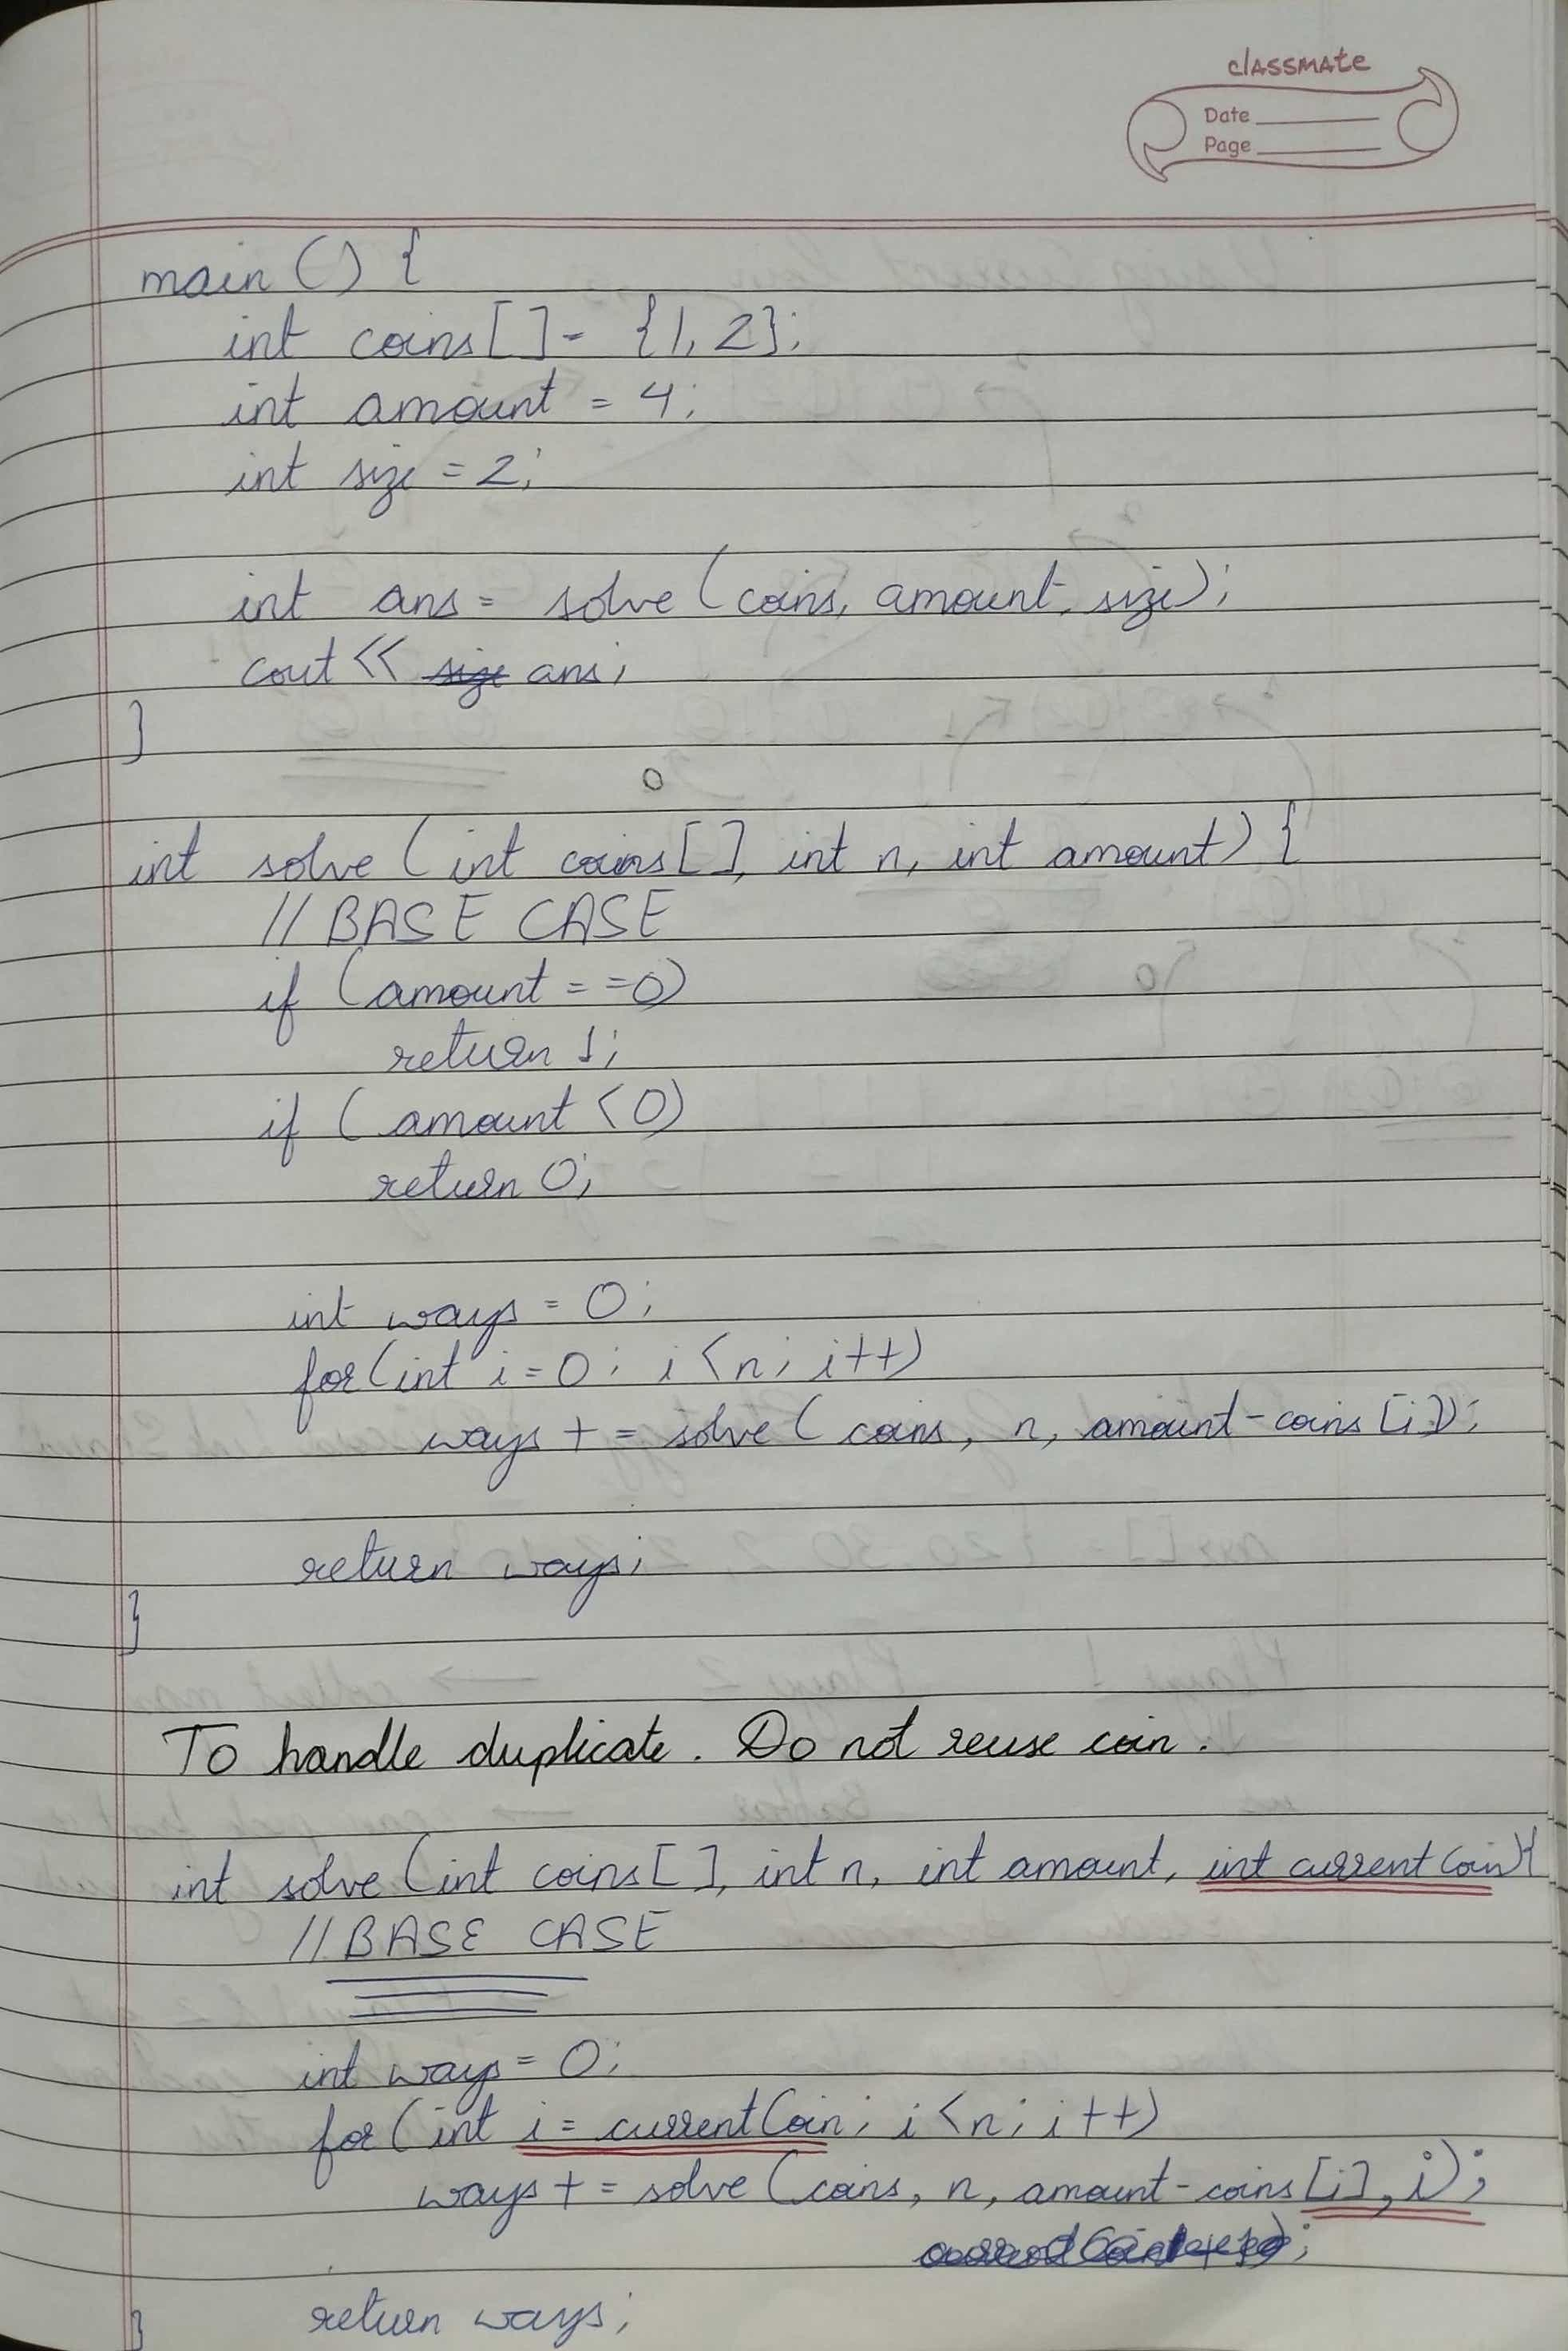 classmate
Date
Page
main () {
int coins[] = {1, 2};
int amount = 4;
int size = 2;
int ans = solve (coins, amount, size);
cout << size ans;
}
int solve (int coins[], int n, int amount) {
// BASE CASE
if (amount == 0)
return 1;
if (amount < 0)
return 0;
int ways = 0;
for (int i = 0; i < n; i++)
ways += solve (coins, n, amount - coins[i]);
return ways;
}
To handle duplicate. Do not reuse coin.
int solve (int coins[], int n, int amount, int currentCoin){
// BASE CASE
int ways = 0;
for (int i = currentCoin; i < n; i++)
ways += solve (coins, n, amount - coins[i], i);
return ways;
}